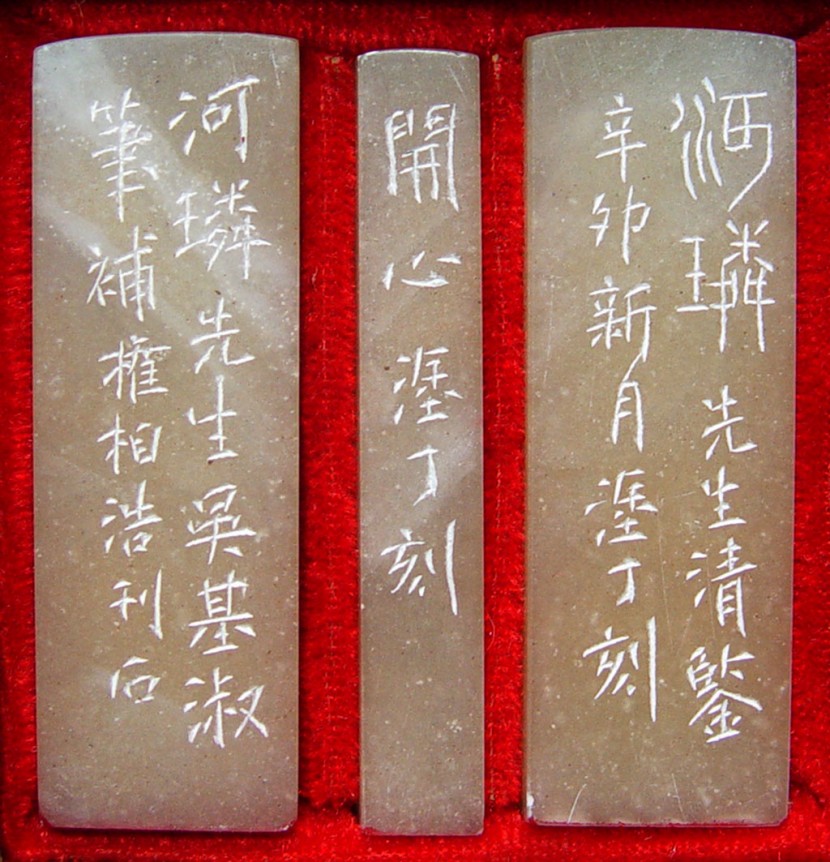 河璘先生清鑒
辛卯新月塗丁刻
開心塗丁刻
河璘先生吳基淑
筆補權柏浩刊石